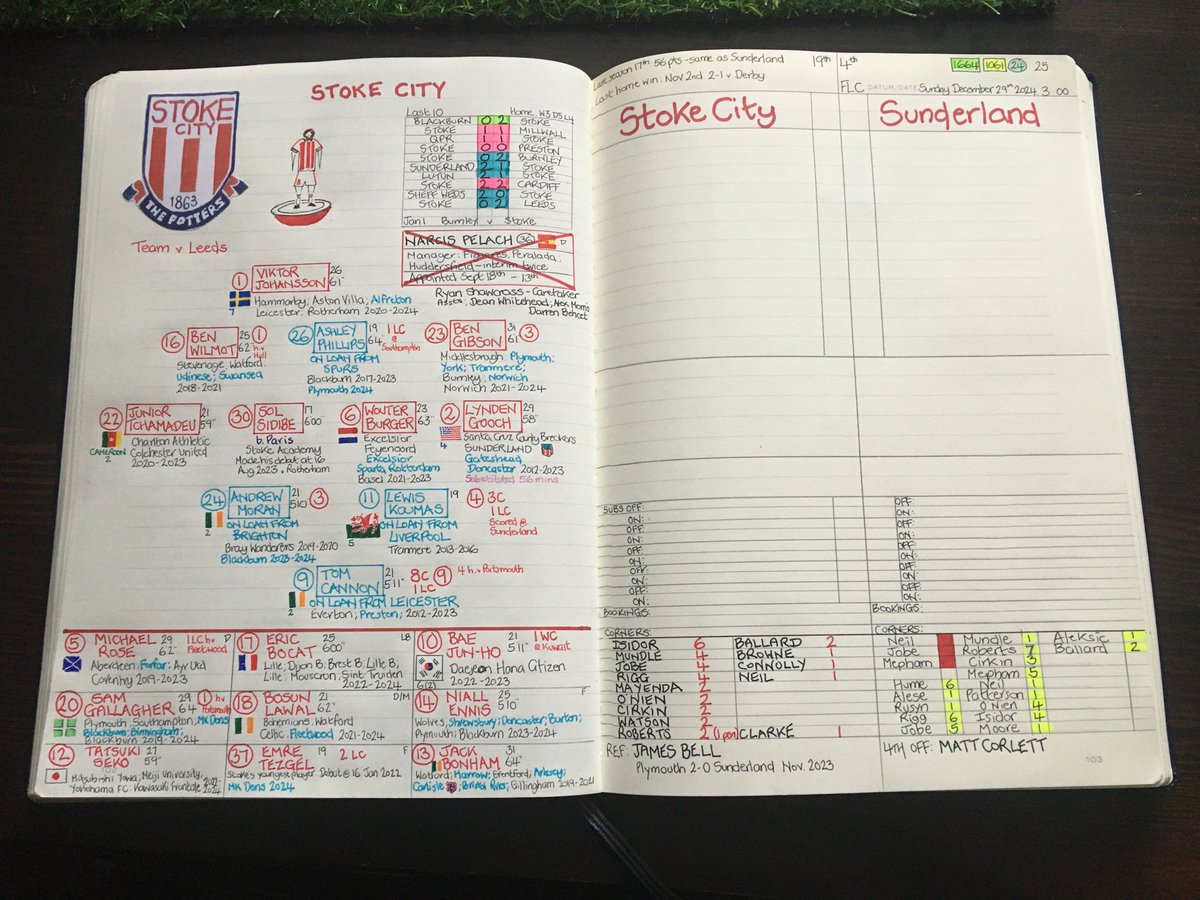 STOKE CITY
STOKE
CITY
1863
THE POTTERS
Last 10 Home: W3 D5 L4
BLACKBURN 0 2 STOKE
STOKE 1 1 MILLWALL
QPR 1 1 STOKE
STOKE 0 0 PRESTON
STOKE 0 2 BURNLEY
SUNDERLAND 2 1 STOKE
LUTON 2 1 STOKE
STOKE 2 2 CARDIFF
SHEFF WEDS 2 0 STOKE
STOKE 0 2 LEEDS
Jan 1 Burnley v Stoke
NARCIS PELACH 36 D
Manager: Figueres, Peralada,
Huddersfield - interim twice
Appointed Sept 18th - 13th
Ryan Shawcross - Caretaker
Assts: Dean Whitehead, Alex Morris
Darren Behcet
Team v Leeds
1 VIKTOR JOHANSSON 26 6'1"
7
Hammarby; Aston Villa; Alfreton
Leicester; Rotherham 2020-2024
16 BEN WILMOT 25 6'2" 1 h.v Hull
Stevenage, Watford
Udinese; Swansea
2018-2021
26 ASHLEY PHILLIPS 19 6'4" 1LC @ Southampton
ON LOAN FROM
SPURS
Blackburn 2017-2023
Plymouth 2024
23 BEN GIBSON 31 6'1 3
Middlesbrough; Plymouth;
York; Tranmere;
Burnley, Norwich
Norwich 2021-2024
22 JUNIOR TCHAMADEU 21 5'9"
CAMEROON
2
Charlton Athletic
Colchester United
2020-2023
30 SOL SIDIBE 17 6'00"
b. Paris
Stoke Academy
Made his debut at 16
Aug 2023 v Rotherham
6 WOUTER BURGER 23 6'3"
Excelsior
Feyenoord
Excelsior
Sparta Rotterdam
Basel 2021-2023
2 LYNDEN GOOCH 29 5'8"
4
Santa Cruz County Breakers
SUNDERLAND
Gateshead
Doncaster 2012-2023
Substituted 56 mins
24 ANDREW MORAN 21 5'10 3
2
ON LOAN FROM
BRIGHTON
Bray Wanderers 2019-2020
Blackburn 2023-2024
11 LEWIS KOUMAS 19 4 3C
1LC
Scored @
Sunderland
5
ON LOAN FROM
LIVERPOOL
Tranmere 2013-2016
9 TOM CANNON 21 5'11" 8C 9 4 h.v Portsmouth
1LC
2
ON LOAN FROM LEICESTER
Everton; Preston; 2012-2023
5 MICHAEL ROSE 29 6'2" 1LC h.v D
Aberdeen; Forfar; Ayr Utd
Coventry 2019-2023
17 ERIC BOCAT 25 6'00" LB
Lille; Dijon B; Brest B; Lille B;
Lille; Mouscron; Sint Truiden
2022-2024
10 BAE JUN-HO 21 5'11" 1 WC @ Kuwait
Daejeon Hana Citizen
2022-2023
20 SAM GALLAGHER 29 6'4 1 h.v Portsmouth
Plymouth; Southampton; MK Dons
Blackburn; Birmingham;
Blackburn 2019-2024
18 BOSUN LAWAL 21 6'2" D/M
Bohemians; Watford
Celtic; Fleetwood 2021-2024
14 NIALL ENNIS 25 5'10" F
Wolves; Shrewsbury; Doncaster; Burton;
Plymouth; Blackburn 2023-2024
12 TATSUKI SEKO 27 5'9"
Mitsubishi Yowa; Meiji University;
Yokohama FC; Kawasaki Frontale 2022-2024
37 EMRE TEZGEL 19 2 LC F
Stoke's youngest player Debut @ 16 Jan 2022
MK Dons 2024
13 JACK BONHAM 31 6'4"
Watford; Harrow; Brentford; Arlesey;
Carlisle; Bristol Rvs; Gillingham 2019-2021
Last season 17th 56 pts - same as Sunderland
Last home win: Nov 2nd 2-1 v Derby
19th 4th
1664 1061 24 25
FLC DATUM/DATE Sunday, December 29th 2024. 3.00
Stoke City Sunderland
SUBS OFF: OFF:
ON: ON:
OFF: OFF:
ON: ON:
OFF: OFF:
ON: ON:
OFF: OFF:
ON: ON:
OFF: OFF:
ON: ON:
BOOKINGS: BOOKINGS:
CORNERS: CORNERS:
ISIDOR 6 BALLARD 2
MUNDLE 4 BROWNE 1
JOBE 4 CONNOLLY 1
RIGG 4 NEIL 1
MAYENDA 2
O'NIEN 2
CIRKIN 2
WATSON 2
ROBERTS 2 (1 pen) CLARKE 1
Neil Mundle 1 Aleksic 1
Jobe Roberts 7 Ballard 2
Mepham Cirkin 3
Mepham 5
Hume 6 Neil 1
Alese 1 Patterson 1
Rusyn 1 O'Nien 4
Rigg 6 Isidor 4
Jobe 5 Moore 1
REF: JAMES BELL
Plymouth 2-0 Sunderland Nov. 2023
4TH OFF: MATT CORLETT
103